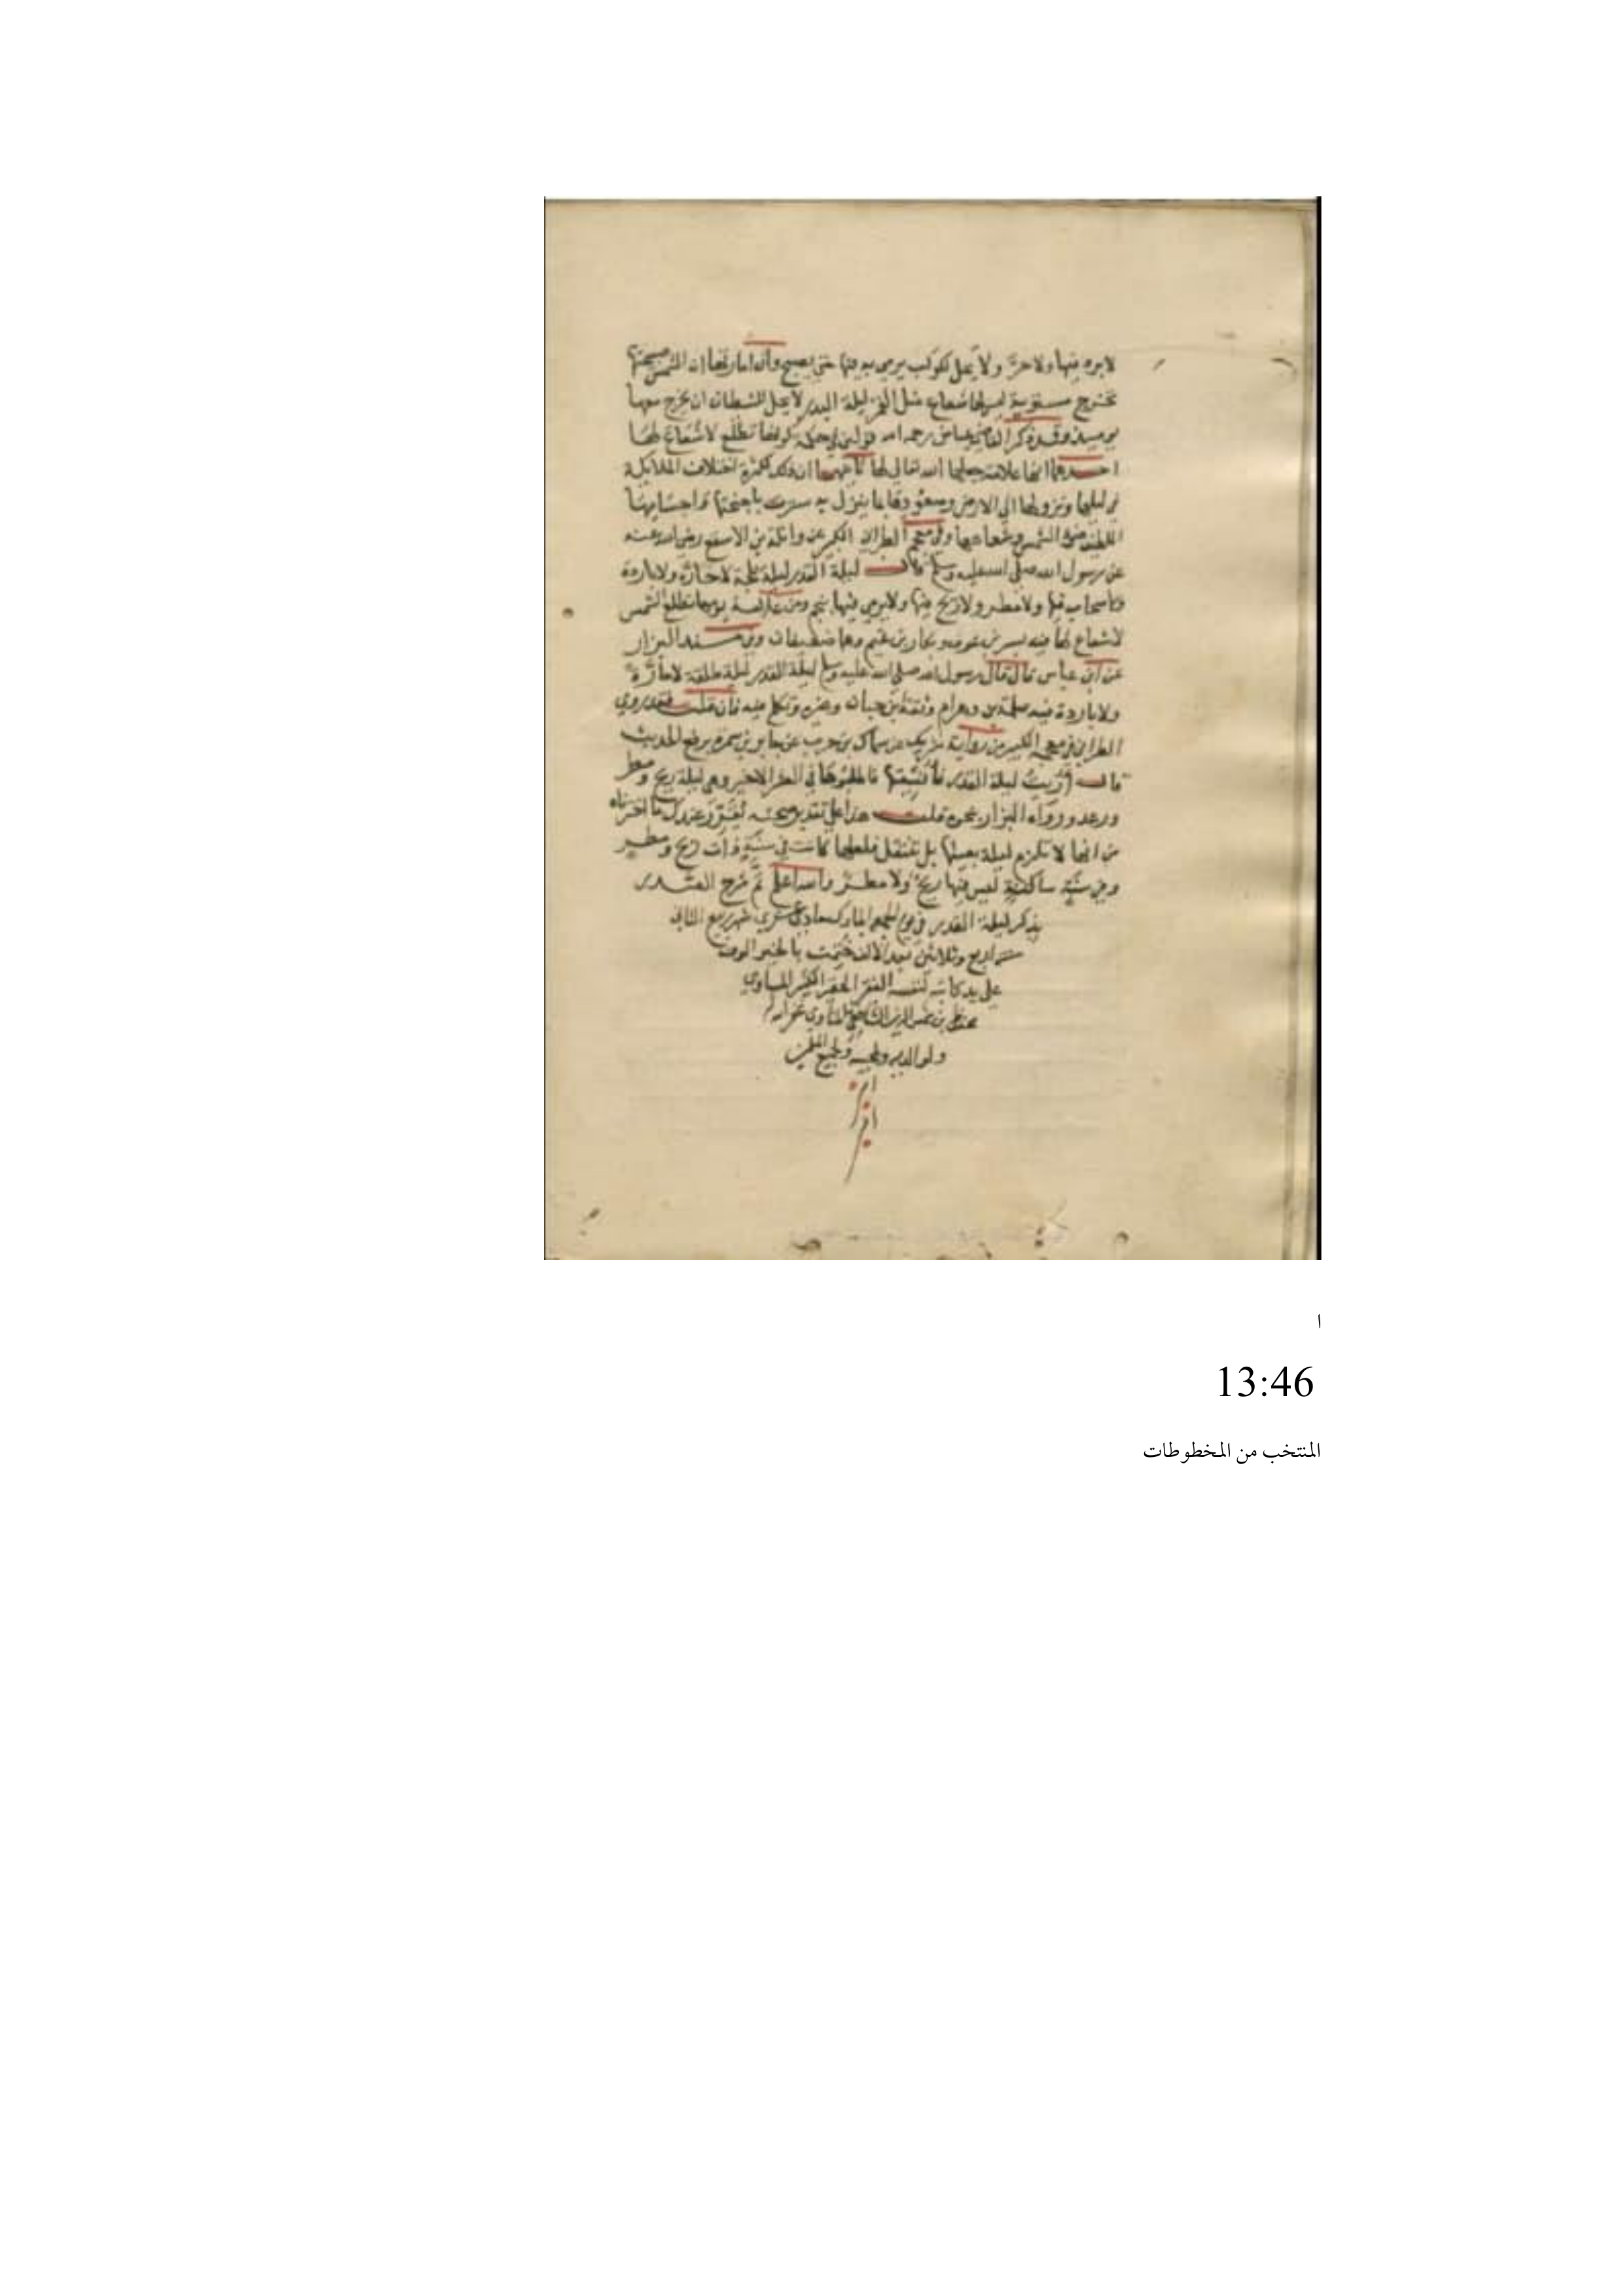 لا برد فيها ولا حر ولا يحل لكوكب يرمى به فيها حتى يصبح وان امارتها ان الشمس صبيحتها
تخرج مستوية ليس لها شعاع مثل القمر ليلة البدر لا يحل للشيطان ان يخرج معها
يوميذ وقد ذكر القاضي عياض رحمه الله قولين في حكمة كونها تطلع لا شعاع لها
احدهما انها علامة جعلها الله تعالى لها ثانيهما ان ذلك لكثرة اختلاف الملايكة
في ليلها ونزولها الى الارض وصعودها بما ينزل به سترت باجنحتها واجسامها
اللطيفة ضوء الشمس وشعاعها وفي معجم الطبراني الكبير عن واثلة بن الاسقع رضي الله عنه
عن رسول الله صلى الله عليه وسلم قال ليلة القدر ليلة بلجة لا حارة ولا باردة
ولا سحاب فيها ولا مطر ولا ريح فيها ولا يرمى فيها بنجم ومن علامة يومها تطلع الشمس
لا شعاع لها فيه بشر بن عون وبكار بن تميم وهما ضعيفان وفي مسند البزار
عن ابن عباس قال قال رسول الله صلى الله عليه وسلم ليلة القدر ليلة طلقة لا حارة
ولا باردة فيه سلمة بن وهرام وثقه ابن حبان وغيره وتكلم فيه فان قلت فقد روي
الطبراني في معجمه الكبير من رواية شريك عن سماك بن حرب عن جابر بن سمرة يرفع الحديث
قال اريت ليلة القدر فانسيتها فاطلبوها في العشر الاخير وهي ليلة ريح ومطر
ورعد ورواه البزار بنحوه قلت هذا على تقدير صحته
من انها لا تلزم ليلة بعينها بل تنتقل فلعلها كانت في سنة ذات ريح ومطر
وفي سنة ساكنة ليس فيها ريح ولا مطر والله اعلم تم شرح الصدر
بذكر ليلة القدر في يوم الجمعة المبارك حادي عشري شهر ربيع الثاني
سنة اربع وثلاثين بعد الالف ختمت بالخير
على يد كاتبه لنفسه الفقير الحقير
بن شمس الدين غفر الله له
ولوالديه ولمحبيه ولجميع المسلمين
امين
امين
ا
13:46
المنتخب من المخطوطات